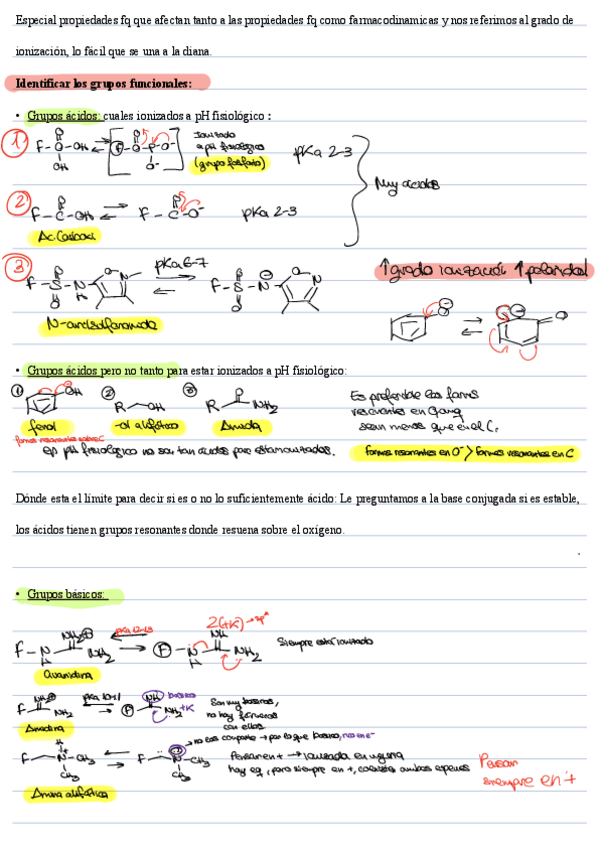 Especial propiedades fq que afectan tanto a las propiedades fq como farmacodinamicas y nos referimos al grado de
ionización, lo fácil que se una a la diana.
Identificar los grupos funcionales:
• Grupos ácidos: cuales ionizados a pH fisiológico :
1) F-O-P-OH
O
OH
Ionizado
a pH fisiológico
(grupo fosfato)
pKa 2-3
Muy ácidos
2) F-C-OH
O
F-C-O⁻
pKa 2-3
3) F-S-N
pKa 6-7
F-S-N
↑grado ionización ↑polaridad
• Grupos ácidos pero no tanto para estar ionizados a pH fisiológico:
① OH ② R OH ③ R O NH₂
fenol -ol alifático Amida
formas resonantes sobre C
en pH fisiológico no son tan ácidos para estar ionizados.
Es preferible las formas
resonantes en O
sean menos que en el C.
formas resonantes en O⁻ > formas resonantes en C
Dónde esta el límite para decir si es o no lo suficientemente ácido: Le preguntamos a la base conjugada si es estable,
los ácidos tienen grupos resonantes donde resuena sobre el oxígeno.
• Grupos básicos:
F-N
H
NH₂
NH₂
pKa 12-13
F-N
H
NH
NH₂
2(+K)
Siempre está ionizado
Guanidina
F NH₂ NH₂
pKa 10-11
F NH NH₂
básico
+K
Son muy básicos,
no hay fármacos
con ellos
Amidina
no los comparte → por lo que básico, no en e⁻
F N-CH₃
CH₃
F N-CH₃
CH₃
Pensar en + → ionizada
hay eq, pero siempre en +, coexisten ambas especies
Pensar
siempre en +
Amina alifática